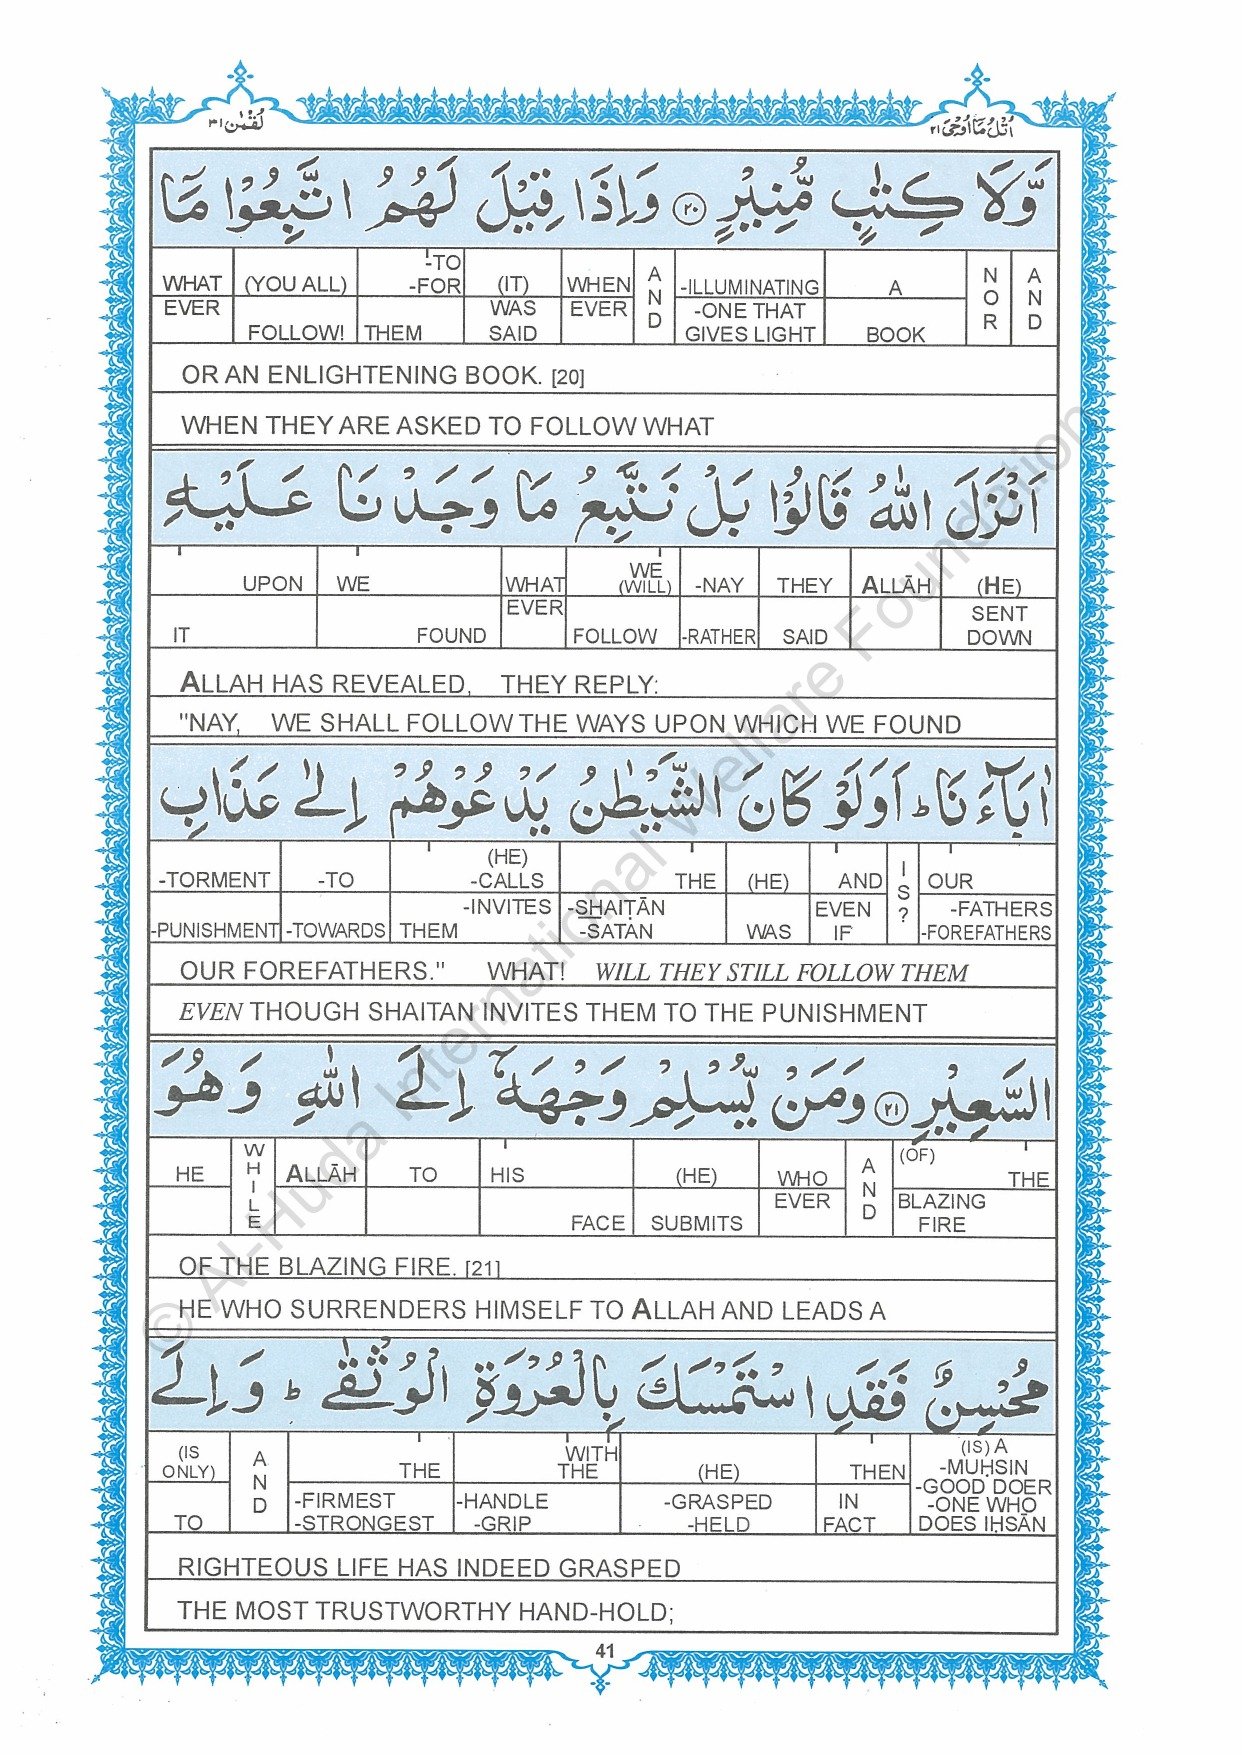 اُتْلُ مَآ اُوْحِيَ ٢١
لُقْمٰن ٣١
وَّلَا كِتٰبٍ مُّنِيْرٍ ٢٠ وَاِذَا قِيْلَ لَهُمُ اتَّبِعُوْا مَآ
WHAT EVER (YOU ALL) FOLLOW! -TO -FOR THEM (IT) WAS SAID WHEN EVER AND -ILLUMINATING -ONE THAT GIVES LIGHT A BOOK NOR AND
OR AN ENLIGHTENING BOOK. [20]
WHEN THEY ARE ASKED TO FOLLOW WHAT
اَنْزَلَ اللّٰهُ قَالُوْا بَلْ نَتَّبِعُ مَا وَجَدْنَا عَلَيْهِ
UPON IT WE FOUND WHAT EVER WE (WILL) FOLLOW -NAY -RATHER THEY SAID ALLĀH (HE) SENT DOWN
ALLAH HAS REVEALED, THEY REPLY:
"NAY, WE SHALL FOLLOW THE WAYS UPON WHICH WE FOUND
اٰبَآءَنَا ؕ اَوَلَوْ كَانَ الشَّيْطٰنُ يَدْعُوْهُمْ اِلٰى عَذَابِ
-TORMENT -PUNISHMENT -TO -TOWARDS (HE) -CALLS -INVITES THEM THE -SHAIṬĀN -SATAN (HE) WAS AND EVEN IF IS? OUR -FATHERS -FOREFATHERS
OUR FOREFATHERS." WHAT! WILL THEY STILL FOLLOW THEM
EVEN THOUGH SHAITAN INVITES THEM TO THE PUNISHMENT
السَّعِيْرِ ٢١ وَمَنْ يُّسْلِمْ وَجْهَهٗٓ اِلَى اللّٰهِ وَهُوَ
HE WHILE ALLĀH TO HIS FACE (HE) SUBMITS WHO EVER AND (OF) THE BLAZING FIRE
OF THE BLAZING FIRE. [21]
HE WHO SURRENDERS HIMSELF TO ALLAH AND LEADS A
مُحْسِنٌ فَقَدِ اسْتَمْسَكَ بِالْعُرْوَةِ الْوُثْقٰى ؕ وَاِلَى
(IS ONLY) TO AND THE -FIRMEST -STRONGEST WITH THE -HANDLE -GRIP (HE) -GRASPED -HELD THEN IN FACT (IS) A -MUḤSIN -GOOD DOER -ONE WHO DOES IḤSĀN
RIGHTEOUS LIFE HAS INDEED GRASPED
THE MOST TRUSTWORTHY HAND-HOLD;
41
© Al-Huda International Welfare Foundation